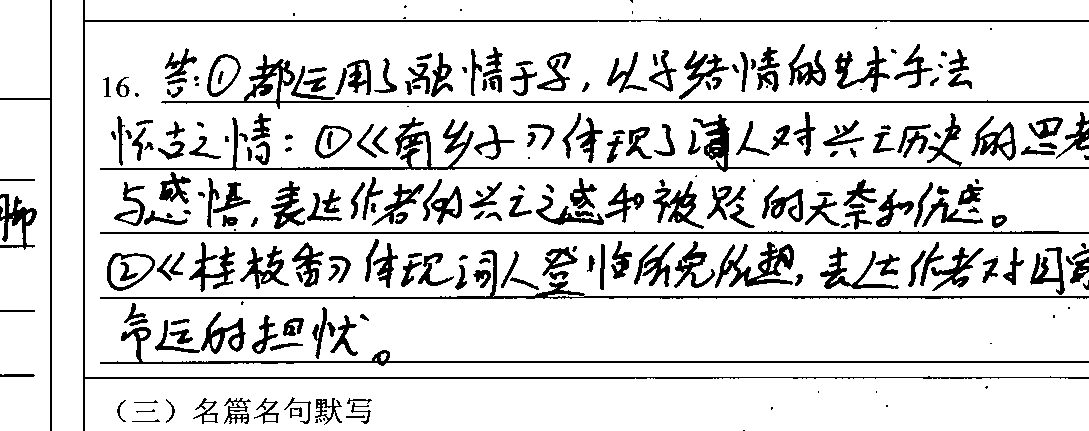 16. 答:①都运用了融情于景,以景结情的艺术手法
怀古之情:①《南乡子》体现了词人对兴亡历史的思考
与感悟,表达作者的兴亡之感和被贬的无奈和伤感。
②《桂枝香》体现词人登临所见所想,表达作者对国家
命运的担忧。
(三)名篇名句默写
脚